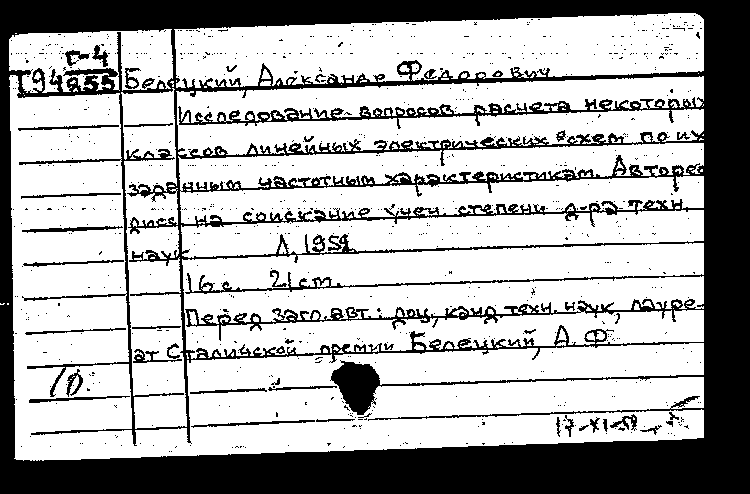 Г-4
Т94 255 Белецкий, Александр Федорович
Исследование вопросов расчета некоторых
классов линейных электрических схем по их
заданным частотным характеристикам. Авторео
дисс. на соискание учен. степени д-ра техн.
наук. Л, 1959.
16 с. 21 cm.
Перед загл. авт.: доц, канд. техн. наук, лауре-
ат Сталинской премии Белецкий, А. Ф.
10.
17-XI-59